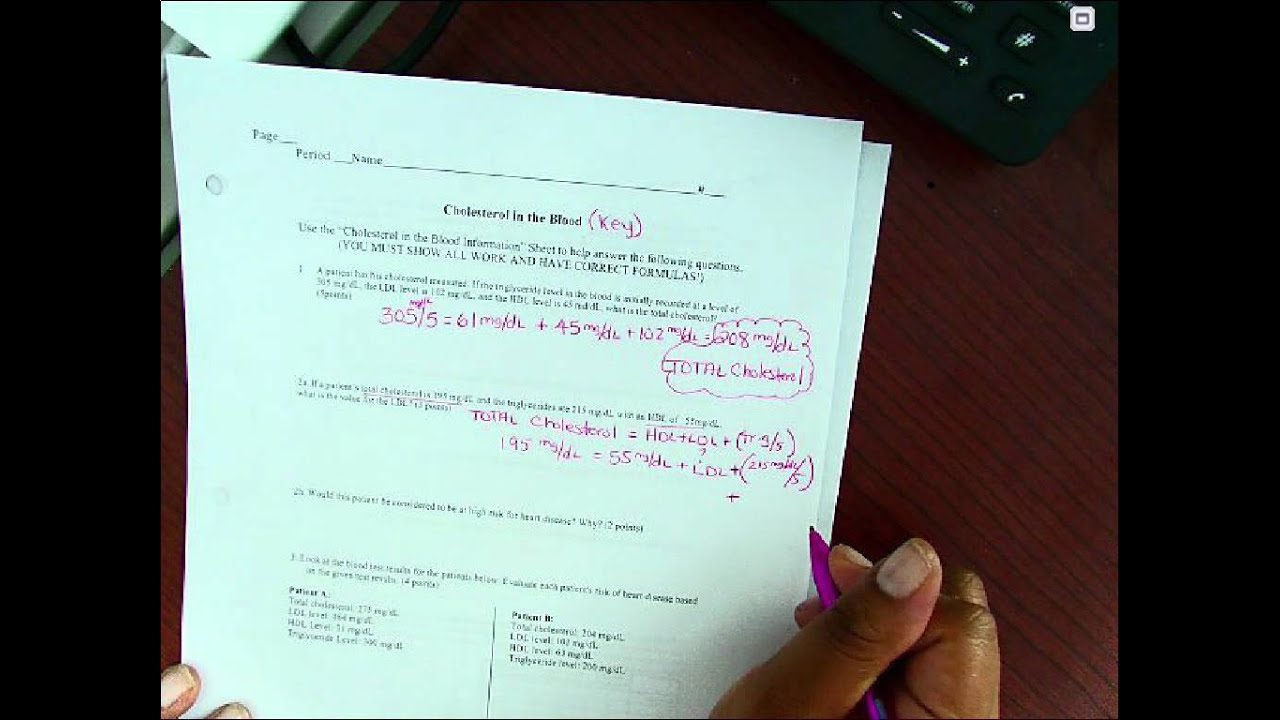 Page
Period Name #
Cholesterol in the Blood (Key)
Use the "Cholesterol in the Blood Information" Sheet to help answer the following questions.
(YOU MUST SHOW ALL WORK AND HAVE CORRECT FORMULAS!)
1 A patient has his cholesterol measured. If the triglyceride level in the blood is initially recorded at a level of
305 mg/dL, the LDL level is 102 mg/dL, and the HDL level is 45 md/dL, what is the total cholesterol?
(5points)
305 mg/dL /5 = 61 mg/dL + 45 mg/dL + 102 mg/dL = 208 mg/dL
TOTAL Cholesterol
2a. If a patient's total cholesterol is 195 mg/dL and the triglycerides are 215 mg/dL with an HDL of 55mg/dL,
what is the value for the LDL? (3 points)
TOTAL Cholesterol = HDL + LDL + (Trig/5)
?
195 mg/dL = 55 mg/dL + LDL + (215 mg/dL/5)
+
2b. Would this patient be considered to be at high risk for heart disease? Why? (2 points)
3. Look at the blood test results for the patients below. Evaluate each patient's risk of heart disease based
on the given test results. (4 points)
Patient A:
Total cholesterol: 275 mg/dL
LDL level: mg/dL
HDL Level: 51 mg/dL
Triglyceride Level: 300 mg/dL
Patient B:
Total cholesterol: 204 mg/dL
LDL level: 102 mg/dL
HDL level: 63 mg/dL
Triglyceride level: 200 mg/dL
+
#